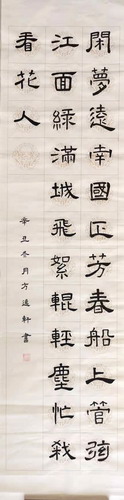 閑夢遠南國正芳春船上管弦
江面綠滿城飛絮輥輕塵忙殺
看花人
辛丑冬月方軒書